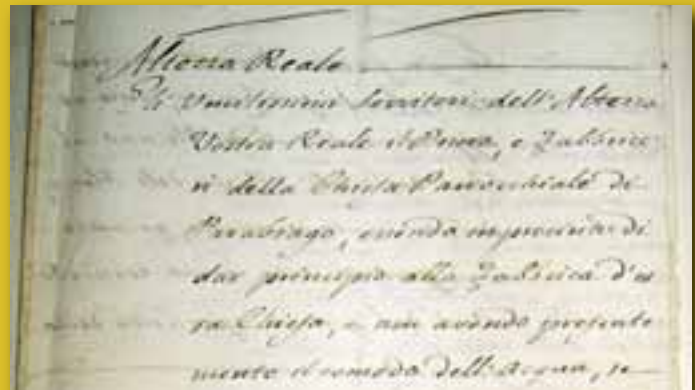 Altezza Reale
Gli Umilissimi Servitori dell'Altezza
Vostra Reale il Preva, e Fabbrice:
ri della Chiesa Parrochiale di
Parabiago, essendo in procinto di
dar principio alla Fabrica d'es
sa Chiesa, e non avendo presente
mente il comodo dell'acqua, si